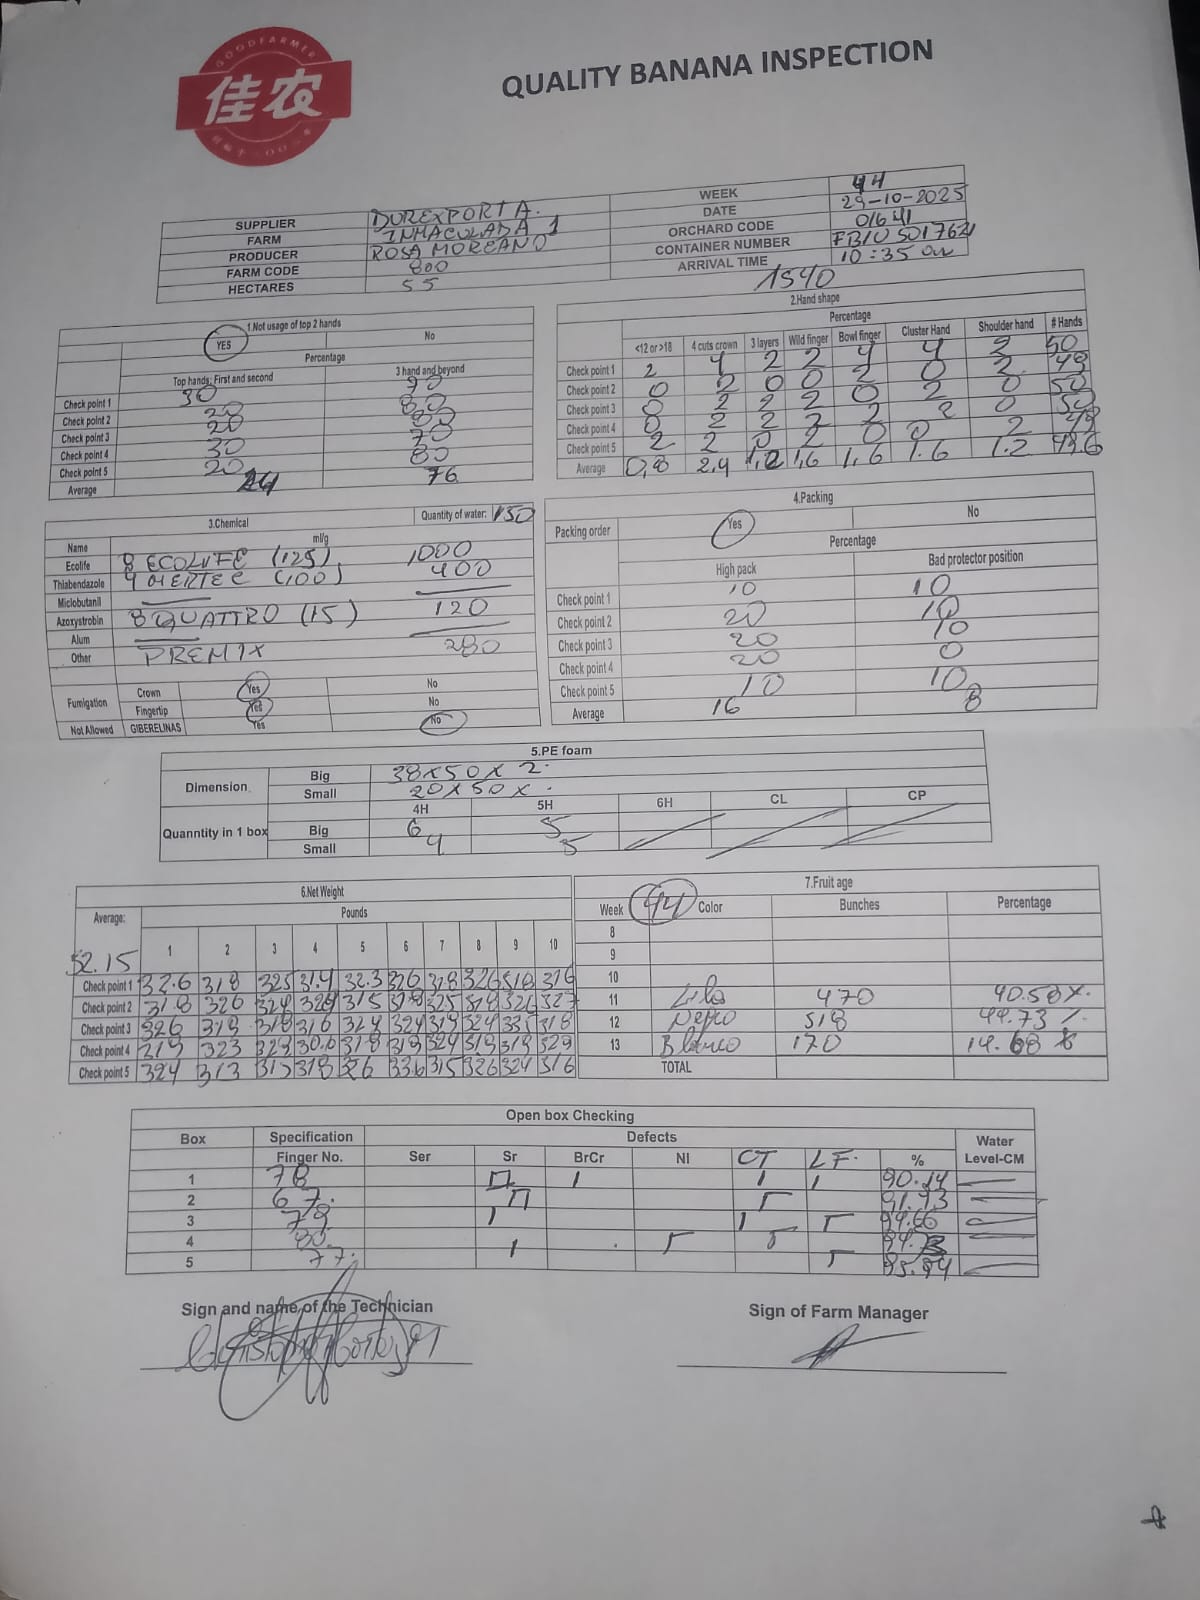 GOODFARMER
佳农
QUALITY BANANA INSPECTION
SUPPLIER DUREXPORTA.
FARM INMACULADA 1
PRODUCER ROSA MOREANO
FARM CODE 800
HECTARES 55
WEEK 44
DATE 29-10-2025
ORCHARD CODE 01641
CONTAINER NUMBER FBIU5017621
ARRIVAL TIME 10:35 am
1540
1.Not usage of top 2 hands
YES No
Percentage
Top hands: First and second 3 hand and beyond
Check point 1 30 70
Check point 2 20 80
Check point 3 20 80
Check point 4 30 70
Check point 5 20 80
Average 24 76
2.Hand shape
Percentage
<12 or >18 4 cuts crown 3 layers Wild finger Bowl finger Cluster Hand Shoulder hand # Hands
Check point 1 2 4 2 2 4 4 2 50
Check point 2 0 2 0 0 2 0 2 49
Check point 3 0 2 2 2 0 2 0 50
Check point 4 0 2 2 2 2 2 0 50
Check point 5 2 2 0 2 0 0 2 49
Average 0,8 2,4 1,2 1,6 1,6 1.6 1.2 49.6
3.Chemical Quantity of water: 150
Name ml/g
Ecolife 8 ECOLIFE (125) 1000
Thiabendazole 4 MERTEC (100) 400
Miclobutanil
Azoxystrobin 8 QUATTRO (15) 120
Alum
Other PREMIX 280
Fumigation Crown Yes No
Fingertip Yes No
Not Allowed GIBERELINAS Yes No
4.Packing
Packing order Yes No
Percentage
High pack Bad protector position
Check point 1 10 10
Check point 2 20 10
Check point 3 20 10
Check point 4 20 0
Check point 5 10 10
Average 16 8
5.PE foam
Dimension Big 38x50x2.
Small 20x50x.
4H 5H 6H CL CP
Quanntity in 1 box Big 6 5
Small 4 5
6.Net Weight
Average: Pounds
52.15 1 2 3 4 5 6 7 8 9 10
Check point 1 32.6 318 325 31.4 32.3 326 318 326 318 316
Check point 2 318 326 324 329 315 318 325 319 326 327
Check point 3 326 319 318 316 324 324 319 324 335 318
Check point 4 319 323 329 30.6 318 319 324 319 319 329
Check point 5 324 313 315 318 326 336 315 326 324 316
7.Fruit age
Week 44 Color Bunches Percentage
8
9
10
11 Lila 470 40.58%.
12 Negro 518 44.73 %
13 Blanco 170 14.68 %
TOTAL
Open box Checking
Box Specification Defects Water
Finger No. Ser Sr BrCr NI CT LF. % Level-CM
1 78 90.14
2 67. 91.73
3 79 94.66
4 80.
5 77.
Sign and name of the Technician
Sign of Farm Manager